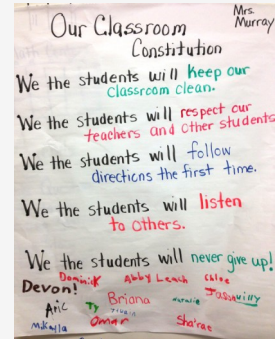 Mrs.
Our Classroom Murray
Constitution
We the students will keep our
classroom clean.
We the students will respect our
teachers and other students
We the students will follow
directions the first time.
We the students will listen
to others.
We the students will never give up!
Dominik Abby Leach Chloe
Devon!
Aric Ty Briana Natalie
Mikaylla Omar Sha'rae